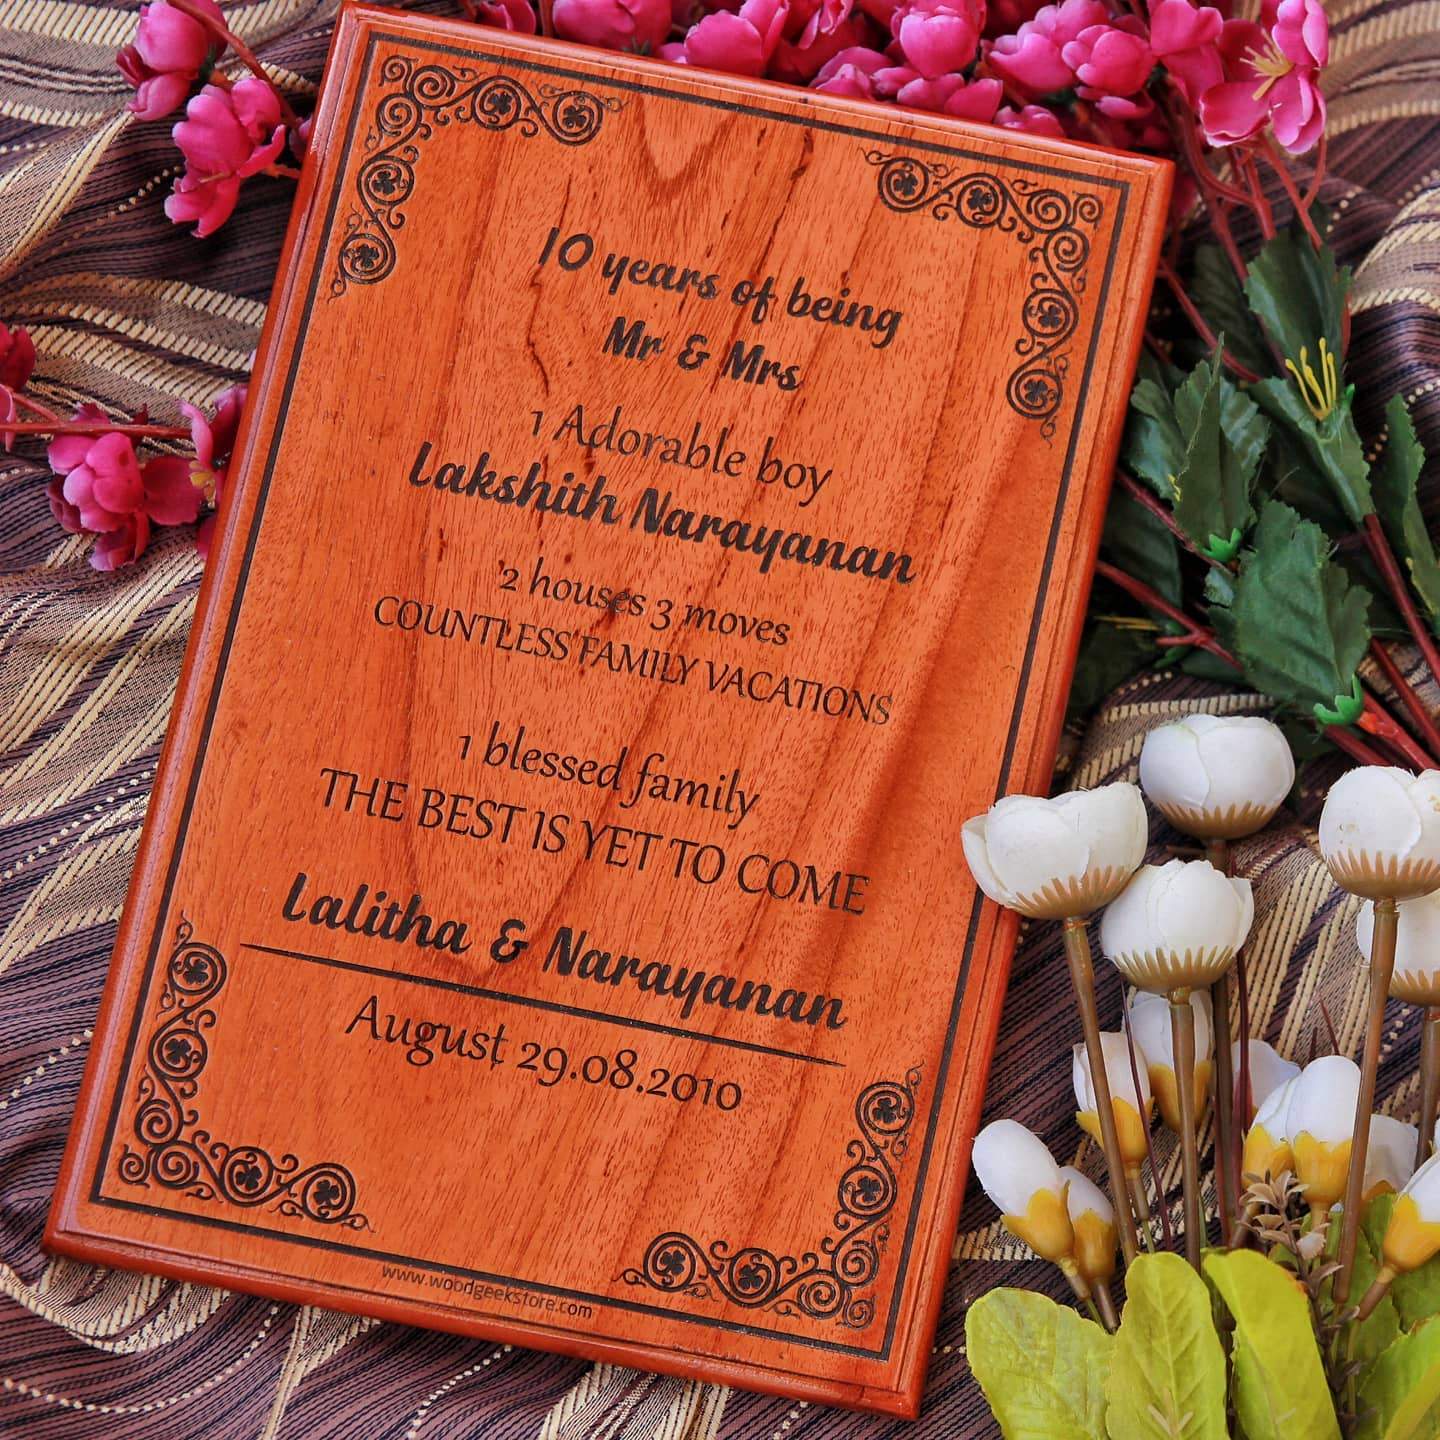 10 years of being
Mr & Mrs
1 Adorable boy
Lakshith Narayanan
2 houses 3 moves
COUNTLESS FAMILY VACATIONS
1 blessed family
THE BEST IS YET TO COME
Lalitha & Narayanan
August 29.08.2010
www.woodgeekstore.com